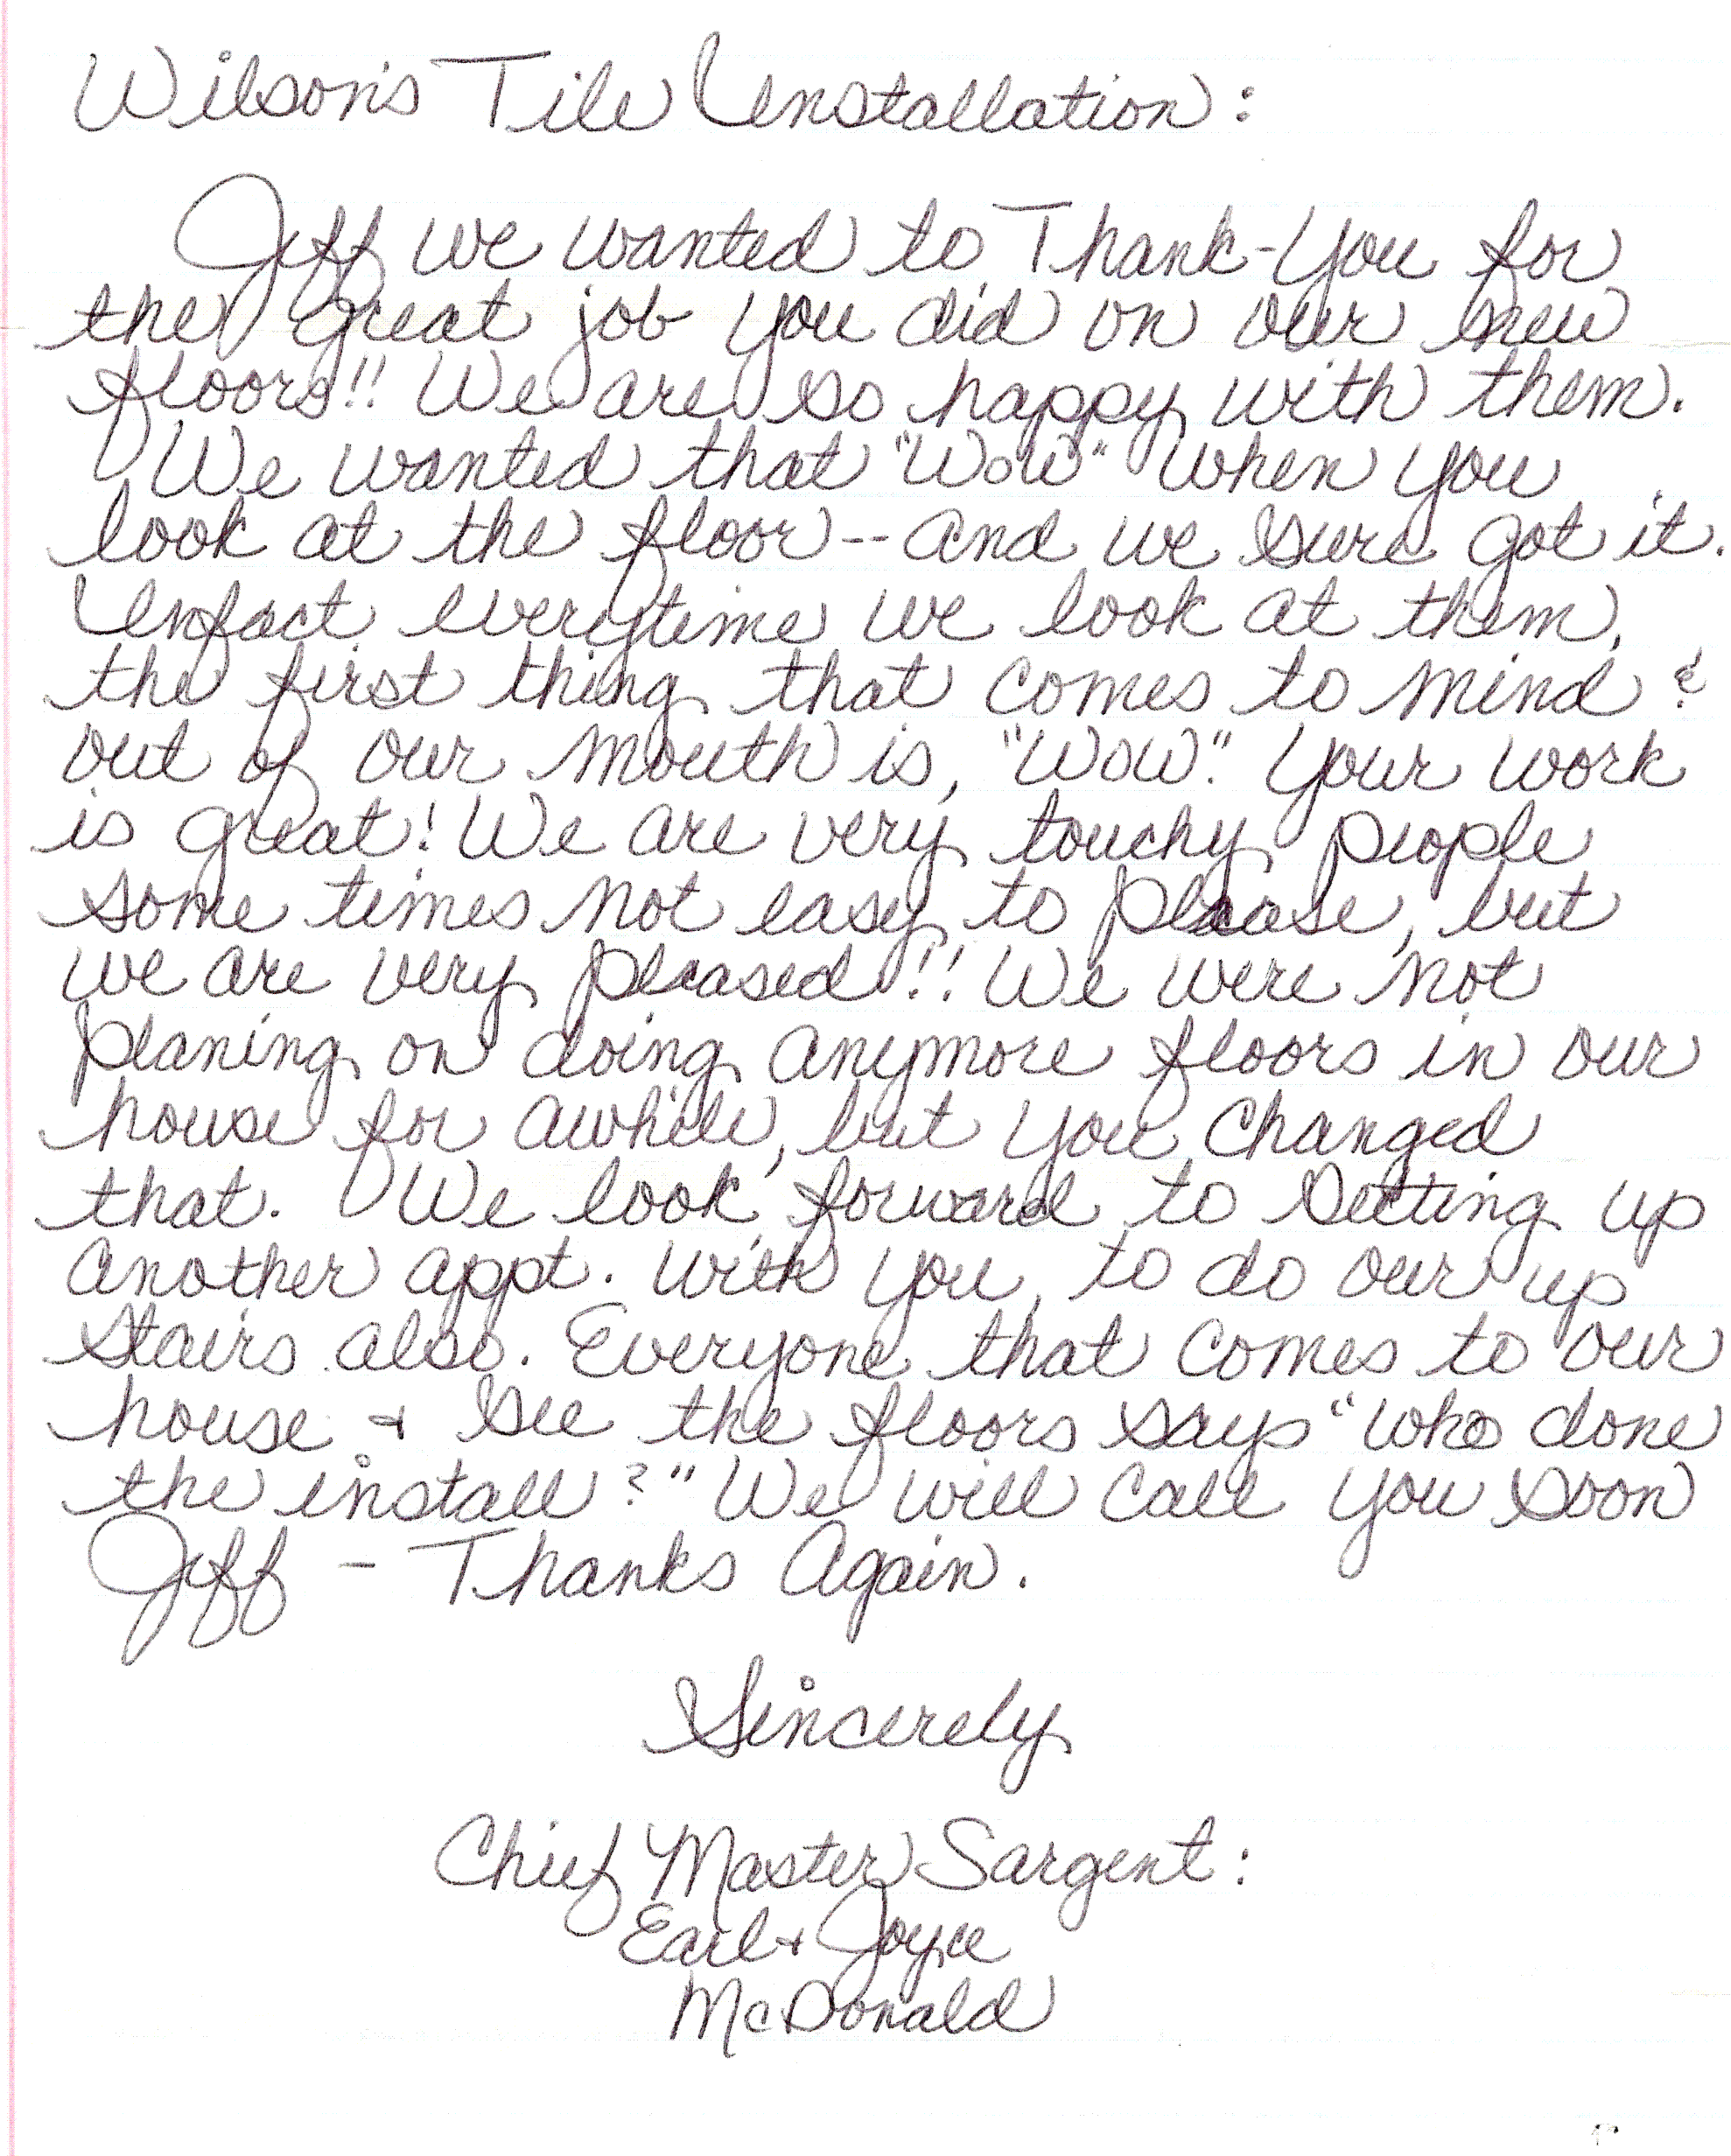 Wilson's Tile Installation:
Jeff we wanted to Thank-You for
the great job you did on our new
floors!! We are so happy with them.
We wanted that "Wow" when you
look at the floor -- and we sure got it.
Infact everytime we look at them,
the first thing that comes to mind &
out of our mouth is, "Wow". Your work
is great! We are very touchy people
some times not easy to please, but
we are very pleased!! We were not
planing on doing anymore floors in our
house for awhile, but you changed
that. We look forward to setting up
another appt. with you, to do our up
stairs also. Everyone that comes to our
house & see the floors says "who done
the install?" We will call you soon
Jeff - Thanks Again.
Sincerely
Chief Master Sargent:
Earl & Joyce
McDonald